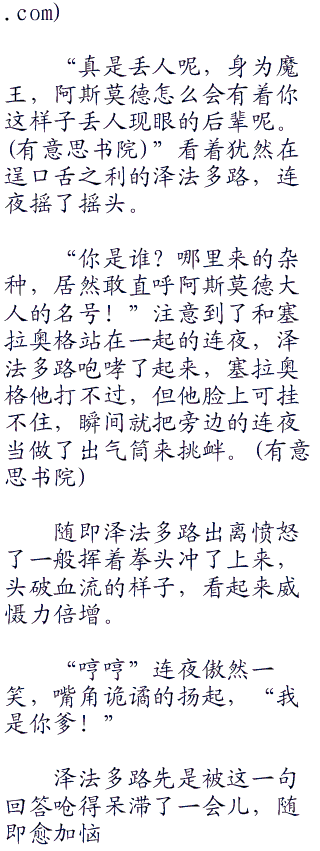 .com)
“真是丢人呢，身为魔
王，阿斯莫德怎么会有着你
这样子丢人现眼的后辈呢。
(有意思书院)”看着犹然在
逞口舌之利的泽法多路，连
夜摇了摇头。
“你是谁？哪里来的杂
种，居然敢直呼阿斯莫德大
人的名号！”注意到了和塞
拉奥格站在一起的连夜，泽
法多路咆哮了起来，塞拉奥
格他打不过，但他脸上可挂
不住，瞬间就把旁边的连夜
当做了出气筒来挑衅。(有意
思书院)
随即泽法多路出离愤怒
了一般挥着拳头冲了上来，
头破血流的样子，看起来威
慑力倍增。
“哼哼”连夜傲然一
笑，嘴角诡谲的扬起，“我
是你爹！”
泽法多路先是被这一句
回答呛得呆滞了一会儿，随
即愈加恼